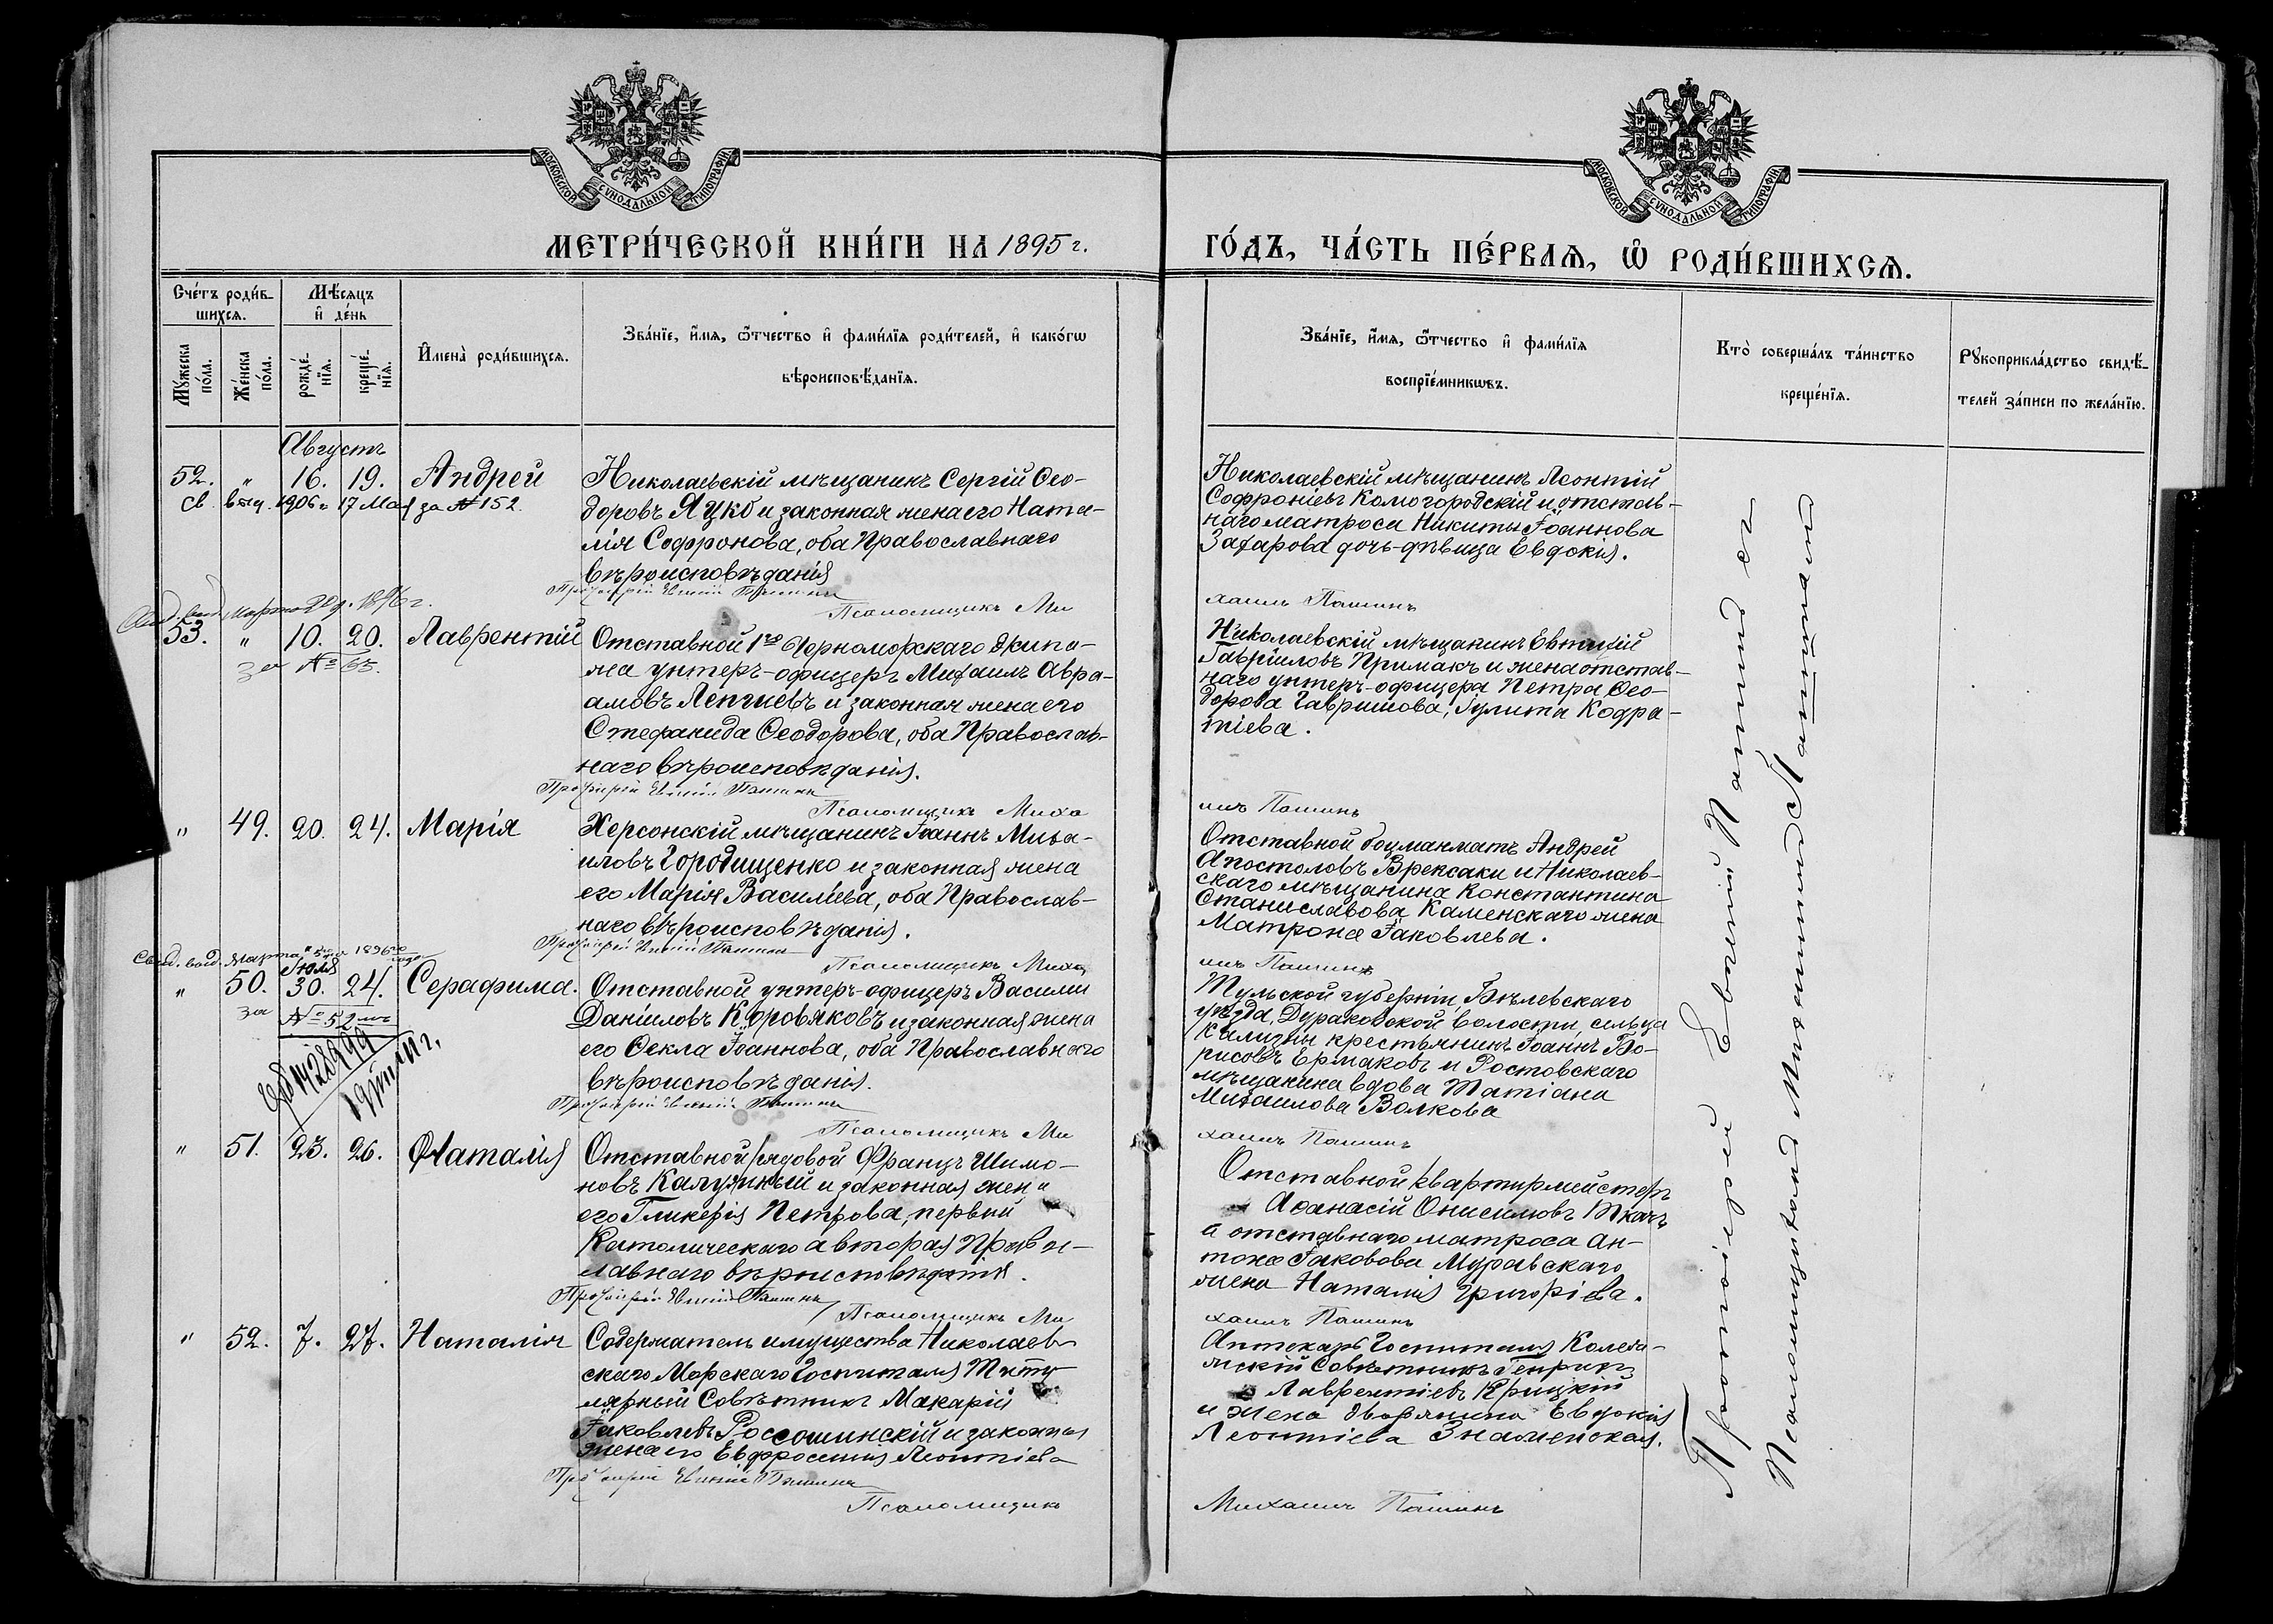 МОСКОВСКОЙ СѴНОДАЛЬНОЙ ТИПОГРАФІИ
МОСКОВСКОЙ СѴНОДАЛЬНОЙ ТИПОГРАФІИ
МЕТРИ́ЧЕСКОЙ КНИ́ГИ НА 1895 г.
ГО́ДЪ, ЧА́СТЬ ПЕ́РВАѦ, Ѡ РОДИ́ВШИХСѦ.
Сче́тъ роди́в-
шихсѧ.
Мꙋ́жеска
по́ла.
Же́нска
по́ла.
Мѣ́сѧцъ
и҆ де́нь
рожде́-
нїѧ.
креще́-
нїѧ.
И҆мена̀ роди́вшихсѧ.
Зва́нїе, и҆́мѧ, ѻ҆́тчество и҆ фами́лїѧ роди́телей, и҆ како́гѡ
вѣроисповѣ́данїѧ.
Зва́нїе, и҆́мѧ, ѻ҆́тчество и҆ фами́лїѧ
воспрїе́мникѡвъ.
Кто̀ соверша́лъ та́инство
креще́нїѧ.
Рꙋкоприкла́дство свидѣ́-
телей за́писи по жела́нїю.
Августъ
52. " 16. 19. Андрей
Св. выд. 1906 г. 17 Мая за № 152.
Николаевскій мѣщанинъ Сергій Ѳео-
доровъ Яцко и законная жена его Ната-
лія Софронова, оба Православнаго
вѣроисповѣданія
Протоіерей Евгеній Пашинъ
Псаломщикъ Ми
Николаевскій мѣщанинъ Леонтій
Софроніевъ Комогородскій и отстав-
наго матроса Никиты Іоаннова
Захарова дочь-дѣвица Евдокія.
хаилъ Пашинъ
выд. марта 20 д. 1896 г.
53. " 10. 20. Лаврентій
за № 65.
Отставной 1го Черноморскаго Экипа-
жа унтеръ-офицеръ Михаилъ Авра-
амовъ Лепгиевъ и законная жена его
Стефанида Ѳеодорова, оба Православ-
наго вѣроисповѣданія.
Протоіерей Евгеній Пашинъ
Псаломщикъ Миха
Николаевскій мѣщанинъ Евтихій
Гавріиловъ Примакъ и жена отстав-
наго унтеръ-офицера Петра Ѳео-
дорова Гавришова, Іулита Кодра-
тіева.
илъ Пашинъ
" 49. 20. 24. Марія
Херсонскій мѣщанинъ Іоаннъ Миха-
иловъ Городищенко и законная жена
его Марія Васильева, оба Православ-
наго вѣроисповѣданія.
Протоіерей Евгеній Пашинъ
Псаломщикъ Миха
Отставной боцманматъ Андрей
Апостоловъ Врексаки и Николаев-
скаго мѣщанина Константина
Станиславова Каменскаго жена
Матрона Іаковлева.
илъ Пашинъ
Свид. выд. Марта 1896го года
Іюля
" 50. 30. 24. Серафима.
за № 52мъ
Отставной унтеръ-офицеръ Василій
Даніиловъ Коровяковъ и законная жена
его Ѳекла Іоаннова, оба Православнаго
вѣроисповѣданія.
Протоіерей Евгеній Пашинъ
Псаломщикъ Ми
Тульской губерніи, Бѣлевскаго
уѣзда, Дураковской волости, сельца
Кализны крестьянинъ Іоаннъ Бо-
рисовъ Ермаковъ и Ростовскаго
мѣщанина вдова Татіана
Михаилова Волкова
хаилъ Пашинъ
" 51. 23. 26. Наталія
Отставной рядовой Францъ Шимо-
новъ Калужный и законная жена
его Гликерія Петрова, первый
Католическаго а вторая Правос-
лавнаго вѣроисповѣданія.
Протоіерей Евгеній Пашинъ
Псаломщикъ Ми
Отставной квартирмейстеръ
Аѳанасій Онисимовъ Ткачъ
и отставнаго матроса Ан-
тона Іаковова Муравскаго
жена Наталія Григоріева.
хаилъ Пашинъ
" 52. 7. 27. Наталія
Содержатель имущества Николаев-
скаго Морскаго Госпиталя Титу-
лярный Совѣтникъ Макарій
Іаковлевъ Россошинскій и законная
жена его Евфросинія Леонтіева
Протоіерей Евгеній Пашинъ
Псаломщикъ
Аптекарь Госпиталя Колеж-
скій Совѣтникъ Генрихъ
Лаврентіевъ Крицкій
и жена дворянина Евдокія
Леонтіева Знаменская.
Михаилъ Пашинъ
Протоіерей Евгеній Пашинъ съ
Псаломщикомъ Михаиломъ Пашинымъ